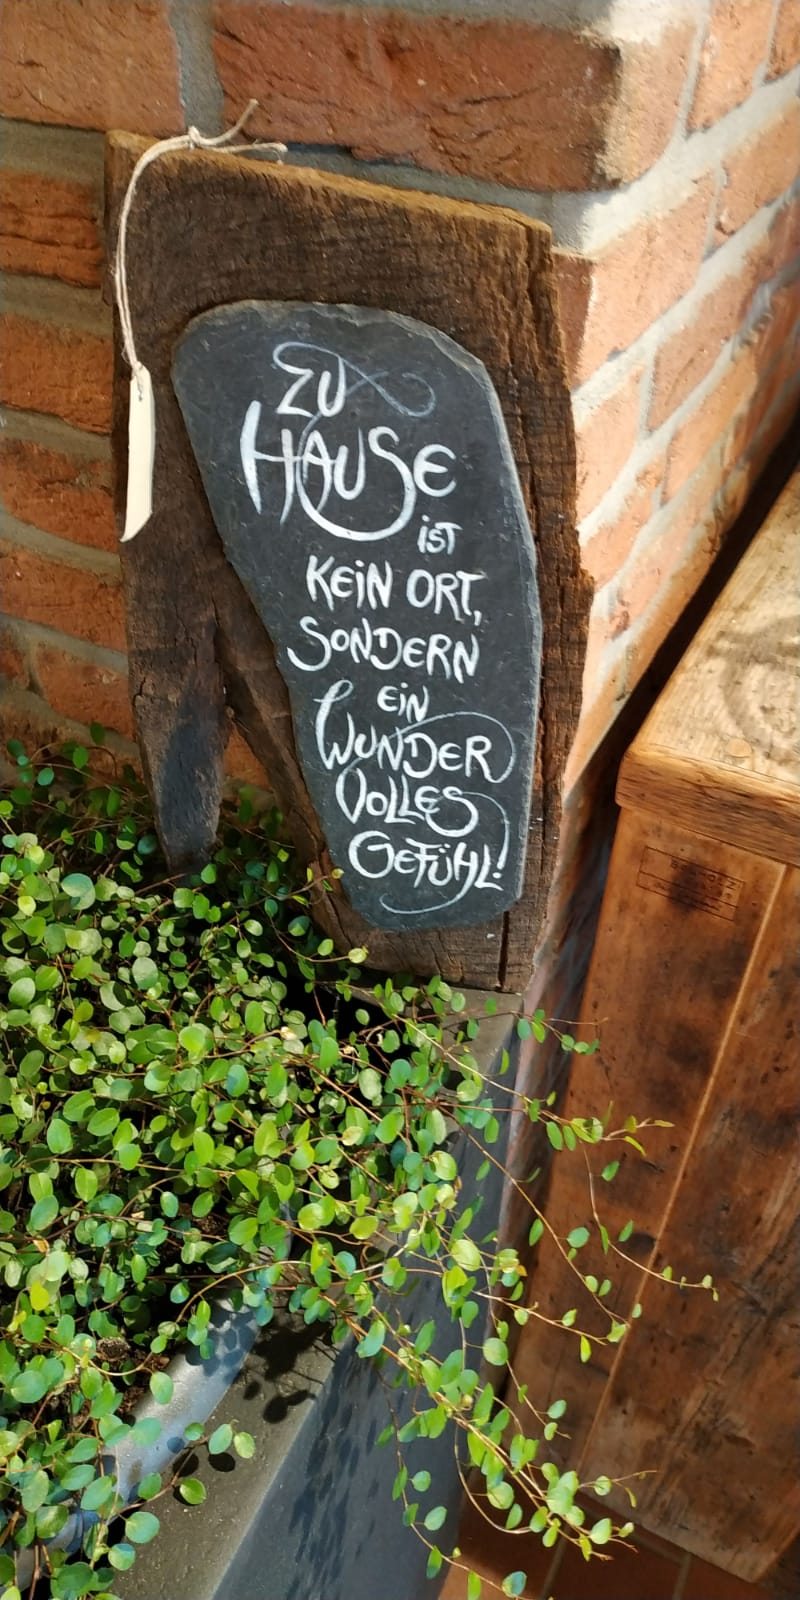 ZU
HAUSE
iST
KEiN ORT,
SONDERN
EiN
WUNDER
VOLLES
GEFÜHL!